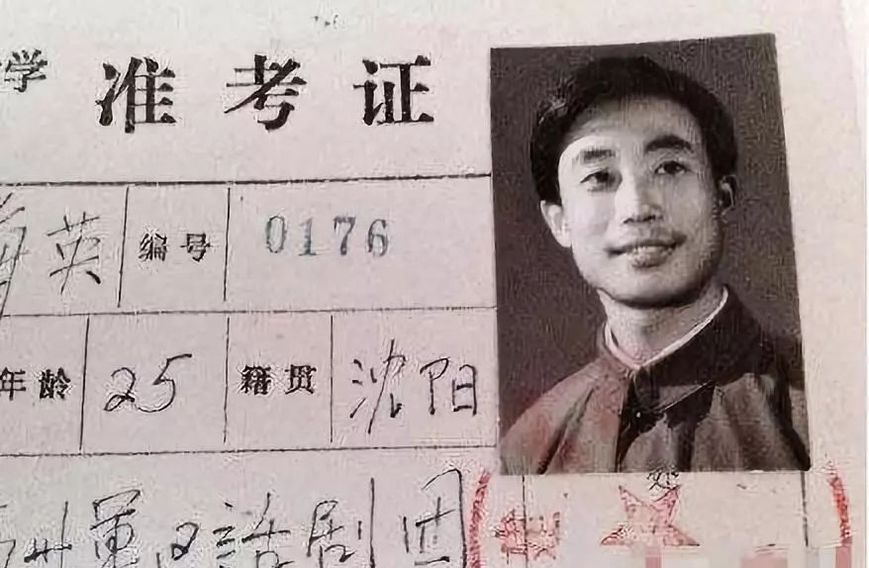 学 准考证
英 编号 0176
年龄 25 籍贯 沈阳
州军区話剧团
处